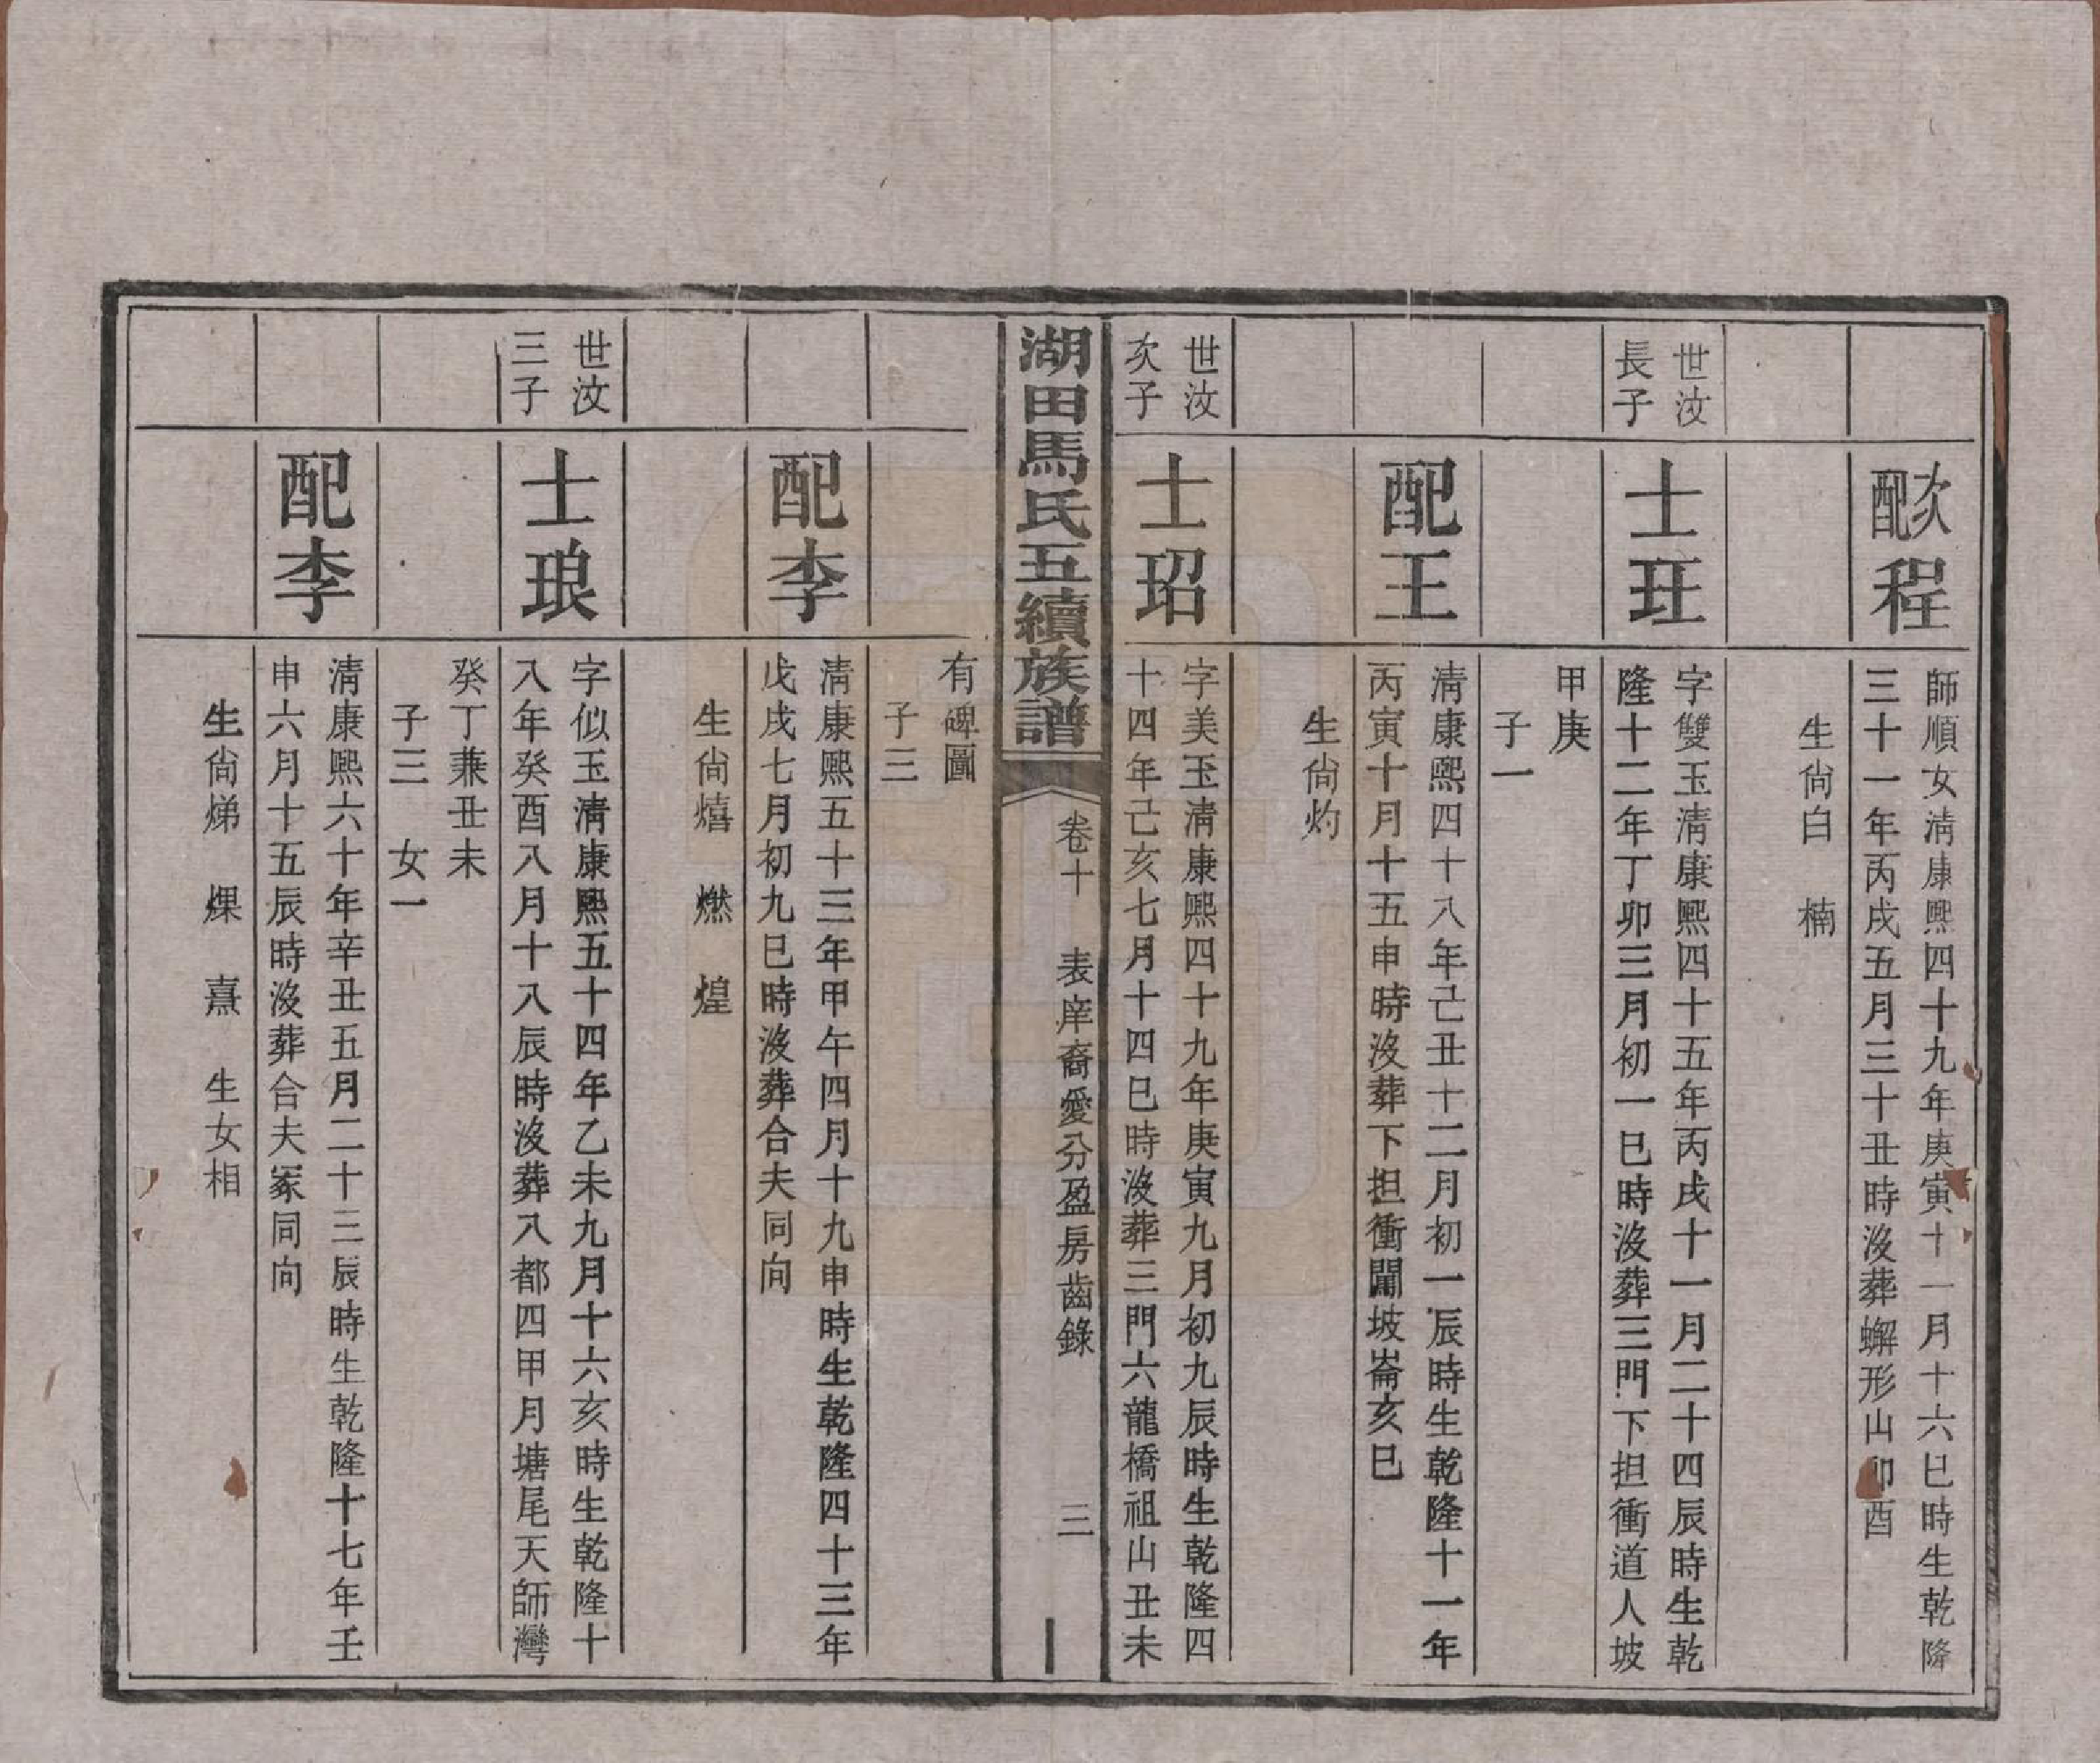 次配程
師順女淸康熙四十九年庚寅十一月十六巳時生乾隆
三十一年丙戌五月三十丑時沒葬蠏形山卯酉
生尙白 楠
世汶
長子
士玨
字雙玉淸康熙四十五年丙戌十一月二十四辰時生乾
隆十二年丁卯三月初一巳時沒葬三門下担衝道人坡
甲庚
子一
配王
淸康熙四十八年己丑十二月初一辰時生乾隆十一年
丙寅十月十五申時沒葬下担衝閘坡崙亥巳
生尙灼
世汶
次子
士玿
字美玉淸康熙四十九年庚寅九月初九辰時生乾隆四
十四年己亥七月十四巳時沒葬三門六龍橋祖山丑未
湖田馬氏五續族譜
卷十 表庠裔愛分盈房齒錄
三
有碑圖
子三
配李
淸康熙五十三年甲午四月十九申時生乾隆四十三年
戊戌七月初九巳時沒葬合夫同向
生尙熺 燃 煌
世汶
三子
士琅
字似玉淸康熙五十四年乙未九月十六亥時生乾隆十
八年癸酉八月十八辰時沒葬八都四甲月塘尾天師灣
癸丁兼丑未
子三 女一
配李
淸康熙六十年辛丑五月二十三辰時生乾隆十七年壬
申六月十五辰時沒葬合夫冢同向
生尙焍 煤 熹 生女相